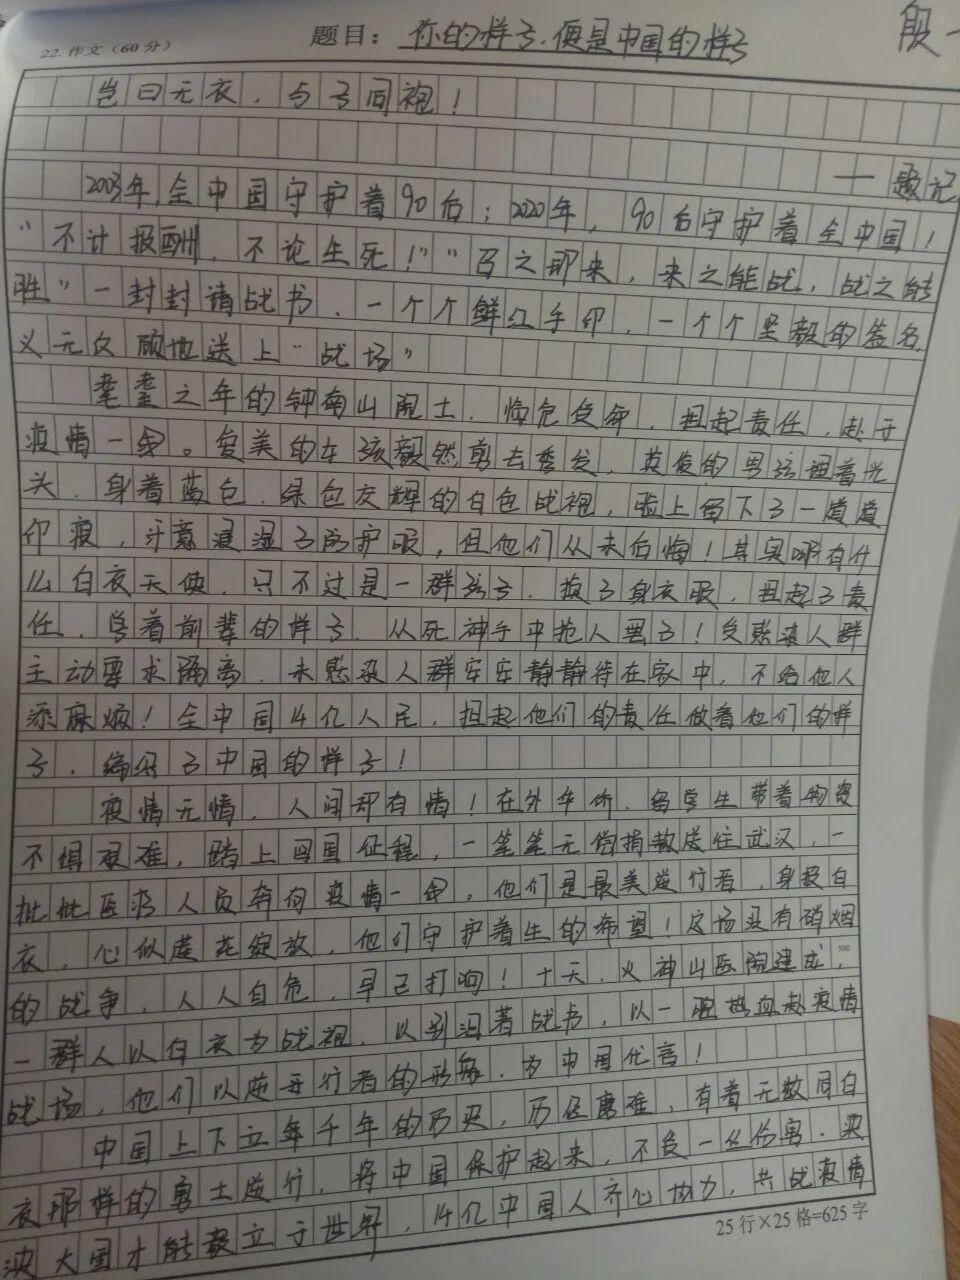 22. 作文（60分）
题目：你的样子，便是中国的样子
段一
岂曰无衣，与子同袍！
——题记
2003年，全中国守护着90后；2020年，90后守护着全中国！
“不计报酬，不论生死！”“召之即来，来之能战，战之能
胜”一封封请战书、一个个鲜红手印、一个个坚毅的签名，
义无反顾地送上“战场”
耄耋之年的钟南山院士，临危受命，担起责任，赴于
疫情一线。爱美的女孩毅然剪去秀发，英俊的男孩理着光
头，身着蓝色、绿色交辉的白色战袍，脸上留下了一道道
印痕，汗意浸湿了防护服，但他们从未后悔！其实哪有什
么白衣天使，只不过是一群孩子，换了身衣服，担起了责
任，学着前辈的样子，从死神手中抢人罢了！受感染人群
主动要求隔离，未感染人群安安静静待在家中，不给他人
添麻烦！全中国14亿人民，担起他们的责任做着他们的样
子，编织了中国的样子！
疫情无情，人间却有情！在外华侨、留学生带着物资
不惧艰难，踏上回国征程，一笔笔无偿捐款送往武汉，一
批批医疗人员奔向疫情一线，他们是最美逆行者，身披白
衣，心似莲花绽放，他们守护着生的希望！这场没有硝烟
的战争，人人自危，早已打响！十天，火神山医院建成，
一群人以白衣为战袍，以 战书，以一腔热血赴疫情
战场，他们以逆行者的形象，为中国代言！
中国上下五千年的历史，历经磨难，有着无数同白
衣那样的勇士逆行，将中国保护起来，不负一丝伤害，泱
泱大国才能矗立于世界，14亿中国人齐心协力，共战疫情
25行×25格=625字